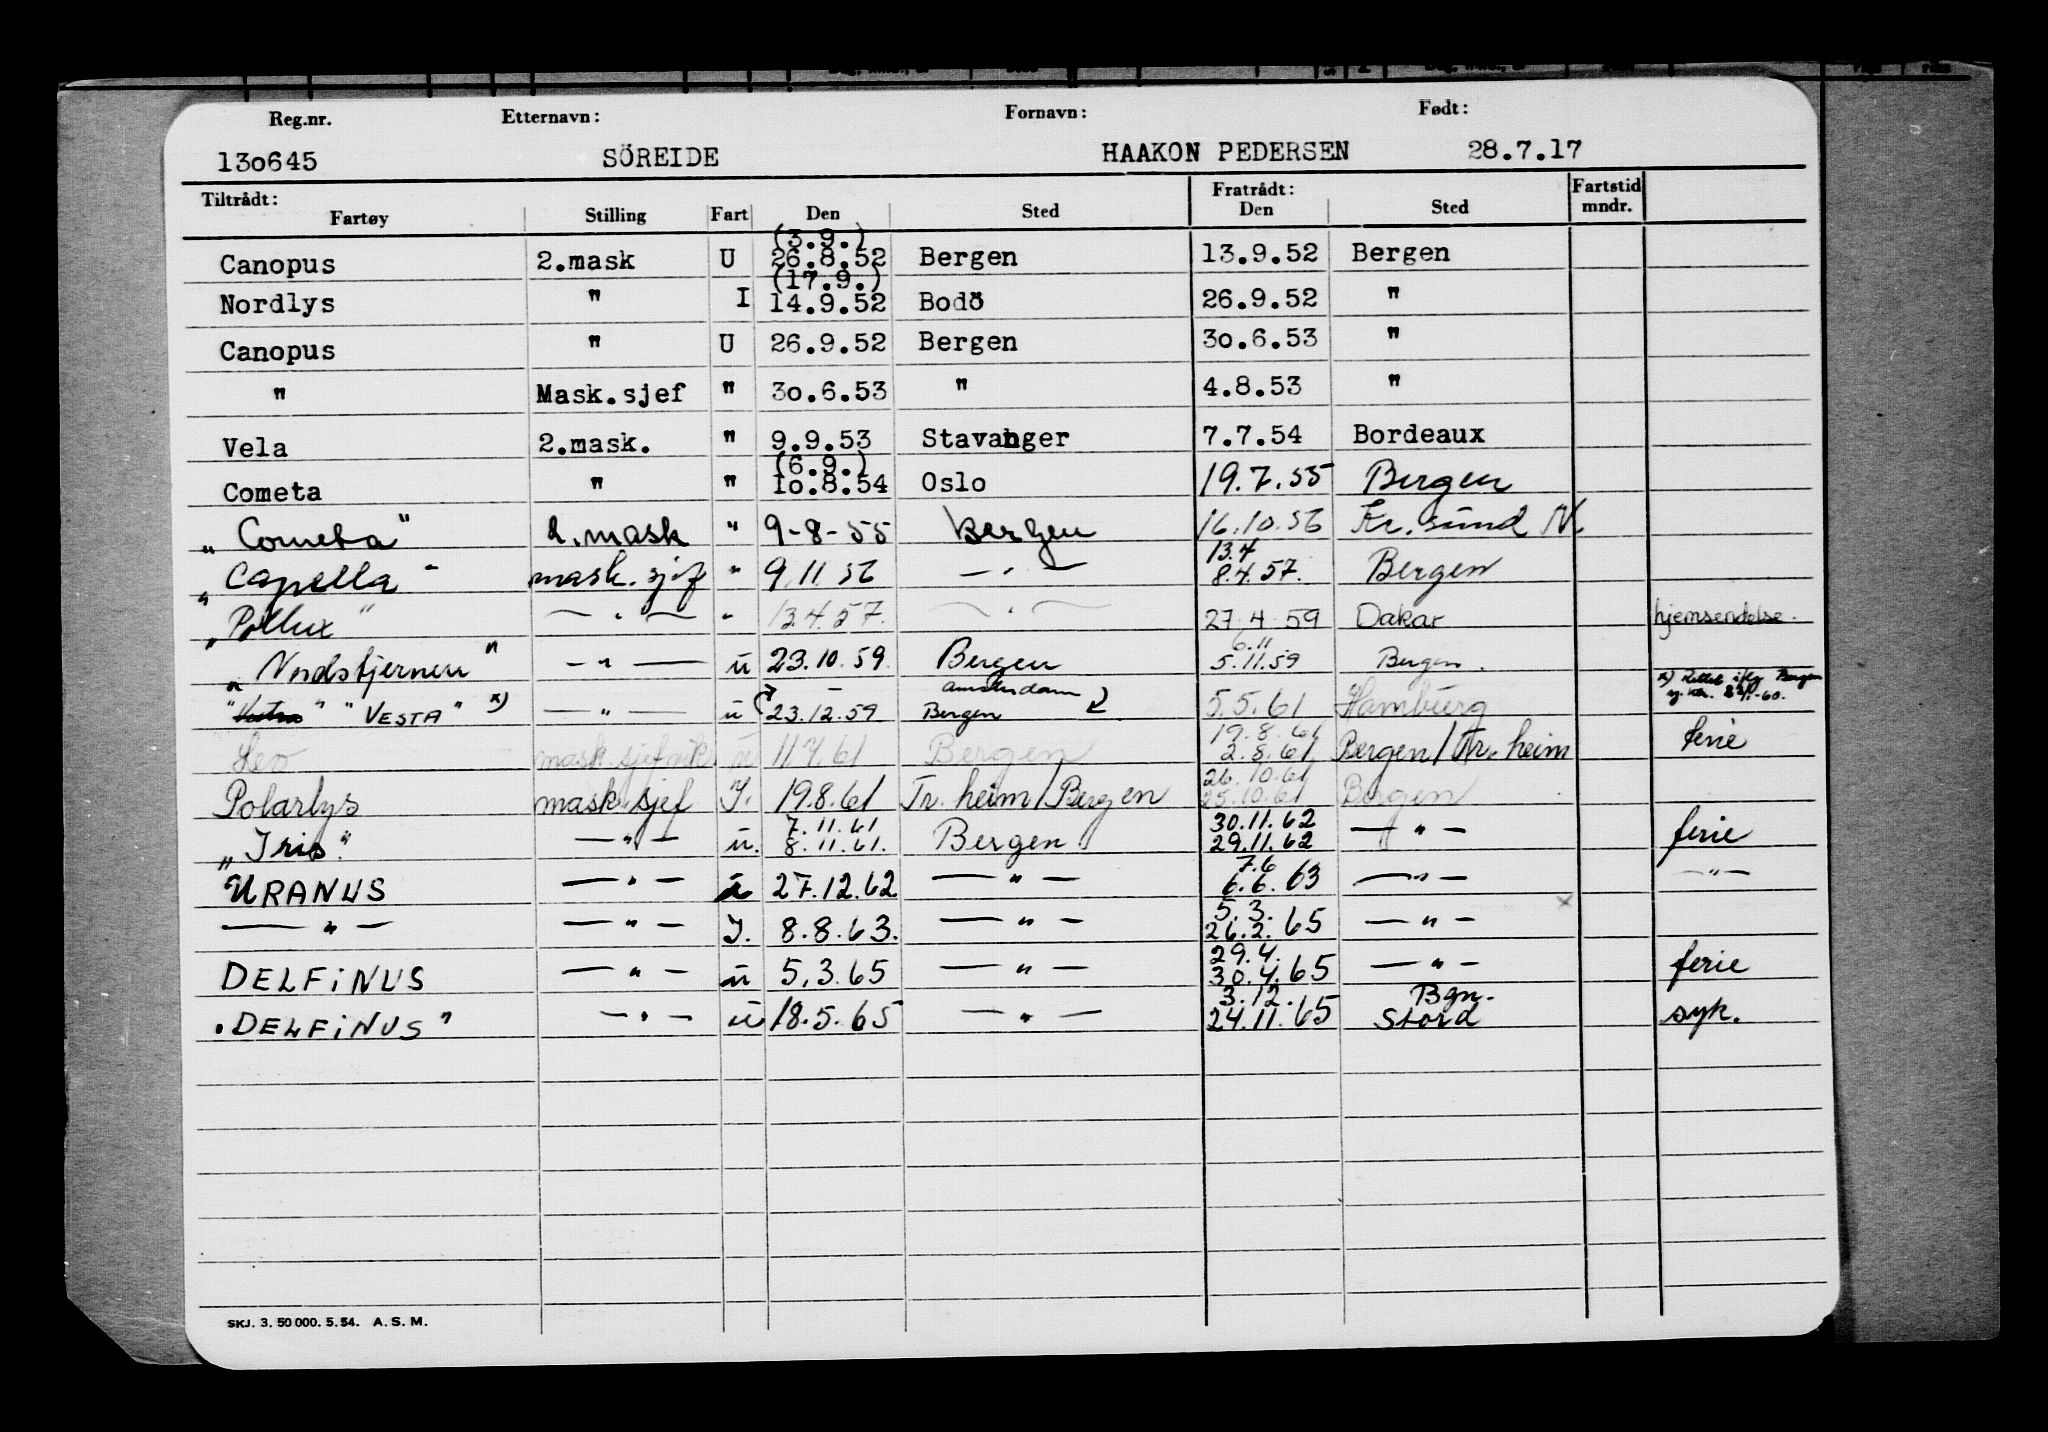 Reg.nr. Etternavn: Fornavn: Født:
130645 SÖREIDE HAAKON PEDERSEN 28.7.17
Tiltrådt: Fratrådt: Fartstid
Fartøy Stilling Fart Den Sted Den Sted mndr.
(3.9.)
Canopus 2.mask U 26.8.52 Bergen 13.9.52 Bergen
(17.9.)
Nordlys " I 14.9.52 Bodö 26.9.52 "
Canopus " U 26.9.52 Bergen 30.6.53 "
" Mask.sjef " 30.6.53 " 4.8.53 "
Vela 2.mask. " 9.9.53 Stavanger 7.7.54 Bordeaux
(6.9.)
Cometa " " 10.8.54 Oslo 19.7.55 Bergen
"Cometa" 2.mask " 9-8-55 Bergen 16.10.56 Kr.sund N
13.4
"Capella" mask.sjef " 9.11 56 — " — 8.4.57. Bergen
"Pollux" — " — " 13.4.57. — " — 27.4.59 Dakar hjemsendelse.
6.11
"Nordstjernen" — " — u 23.10.59. Bergen 5.11.59 Bergen.
Amsterdam
"Vestra" "VESTA" x) — " — u 23.12.59 Bergen 5.5.61 Hamburg x) Rettet iflg Bergen
19.8.61
Leo mask.sjef vik u 11.7.61 Bergen 2.8.61 Bergen/Tr.heim ferie
26.10.61
Polarlys mask.sjef I. 19.8.61 Tr.heim/Bergen 25.10.61 Bergen
7.11.61 30.11.62
"Iris" — " — u. 8.11.61. Bergen 29.11.62 — " — ferie
7.6
URANUS — " — u 27.12.62 — " — 6.6.63 — " — — " —
5.3.
— " — — " — I. 8.8.63. — " — 26.2.65 — " — x
29.4.
DELFiNUS — " — u 5.3.65 — " — 30.4.65 — " — ferie
3.12. Bgn.
"DELFiNUS" — " — u 18.5.65 — " — 24.11.65 Stord syk.
SKJ. 3. 50 000. 5. 54. A. S. M.